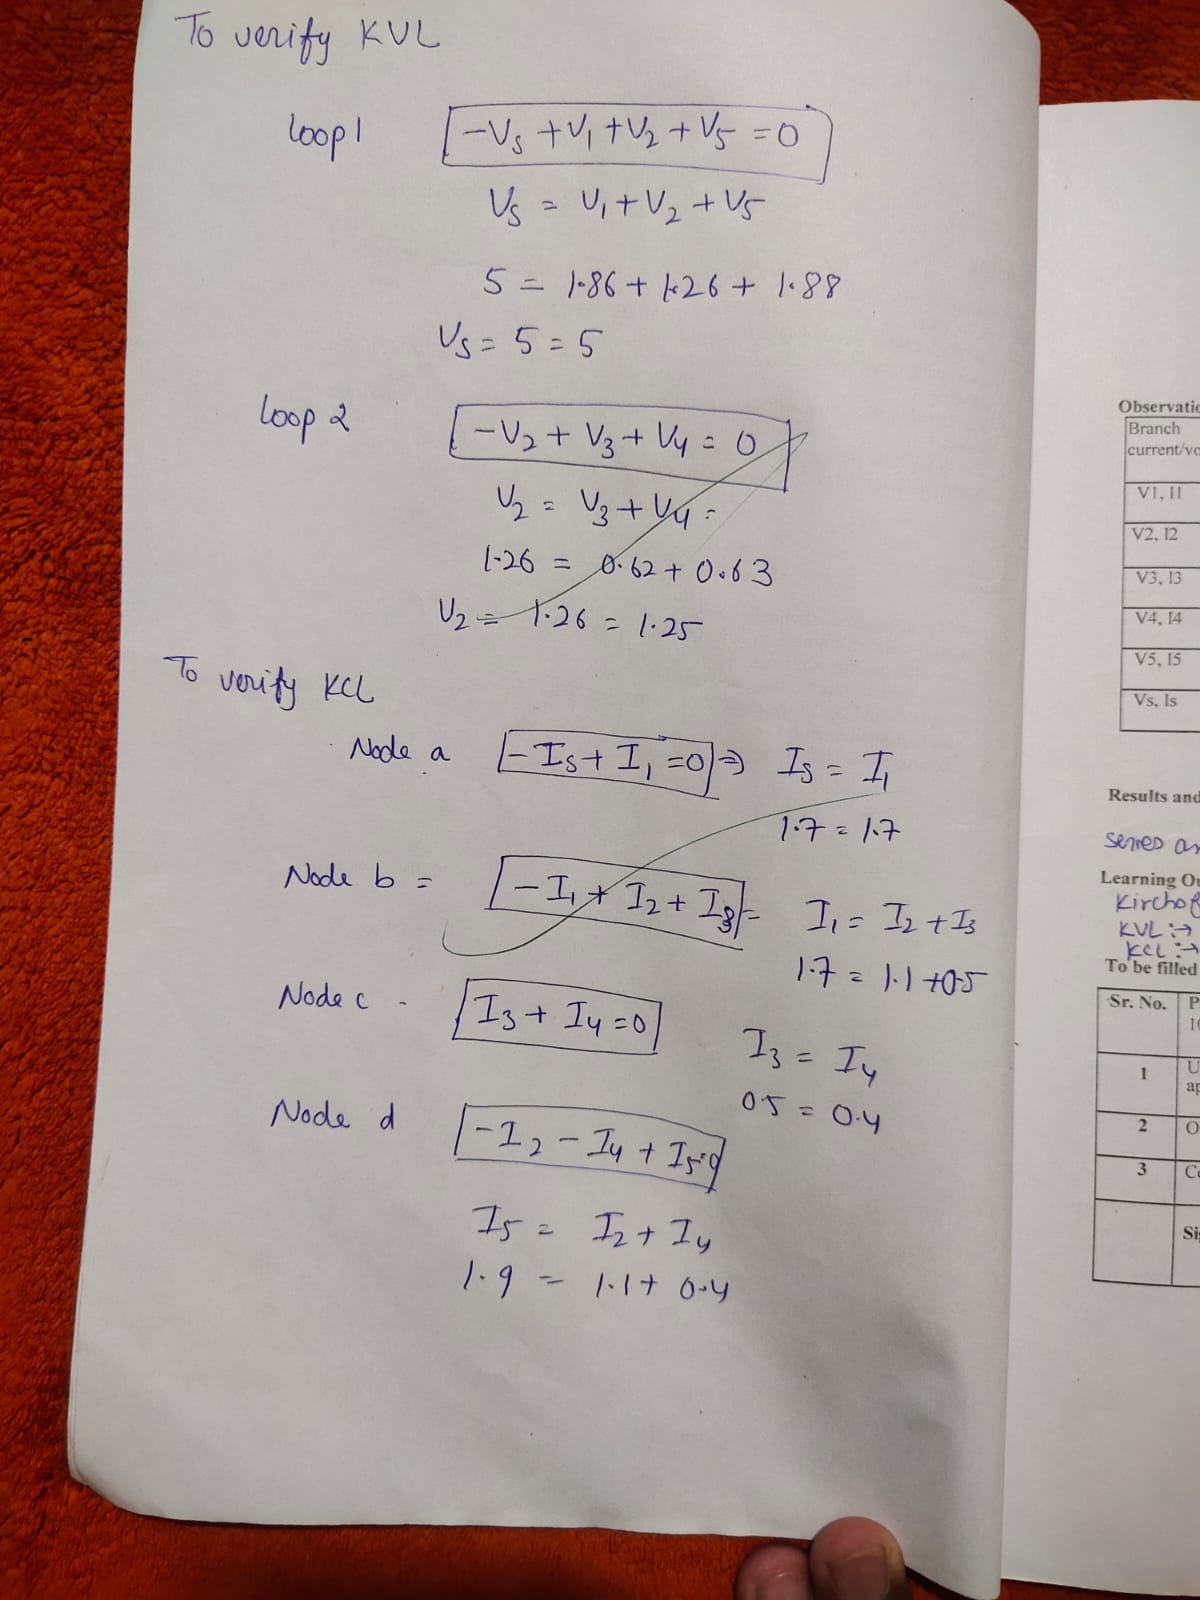 To verify KVL
Loop 1 -Vs + V1 + V2 + V5 = 0
Vs = V1 + V2 + V5
5 = 1.86 + 1.26 + 1.88
Vs = 5 = 5
Loop 2 -V2 + V3 + V4 = 0
V2 = V3 + V4 =
1.26 = 0.62 + 0.63
V2 = 1.26 = 1.25
To verify KCL
Node a -Is + I1 = 0 ⇒ Is = I1
1.7 = 1.7
Node b = -I1 + I2 + I3 = I1 = I2 + I3
1.7 = 1.1 + 0.5
Node c - I3 + I4 = 0
I3 = I4
0.5 = 0.4
Node d -I2 - I4 + I5 = 0
I5 = I2 + I4
1.9 = 1.1 + 0.4
Observatio
Branch
current/vo
V1, I1
V2, I2
V3, I3
V4, I4
V5, I5
Vs, Is
Results and
series an
Learning Ou
Kirchof
KVL :→
KCL :→
To be filled
Sr. No. P
10
1 U
ap
2 O
3 Co
Sig